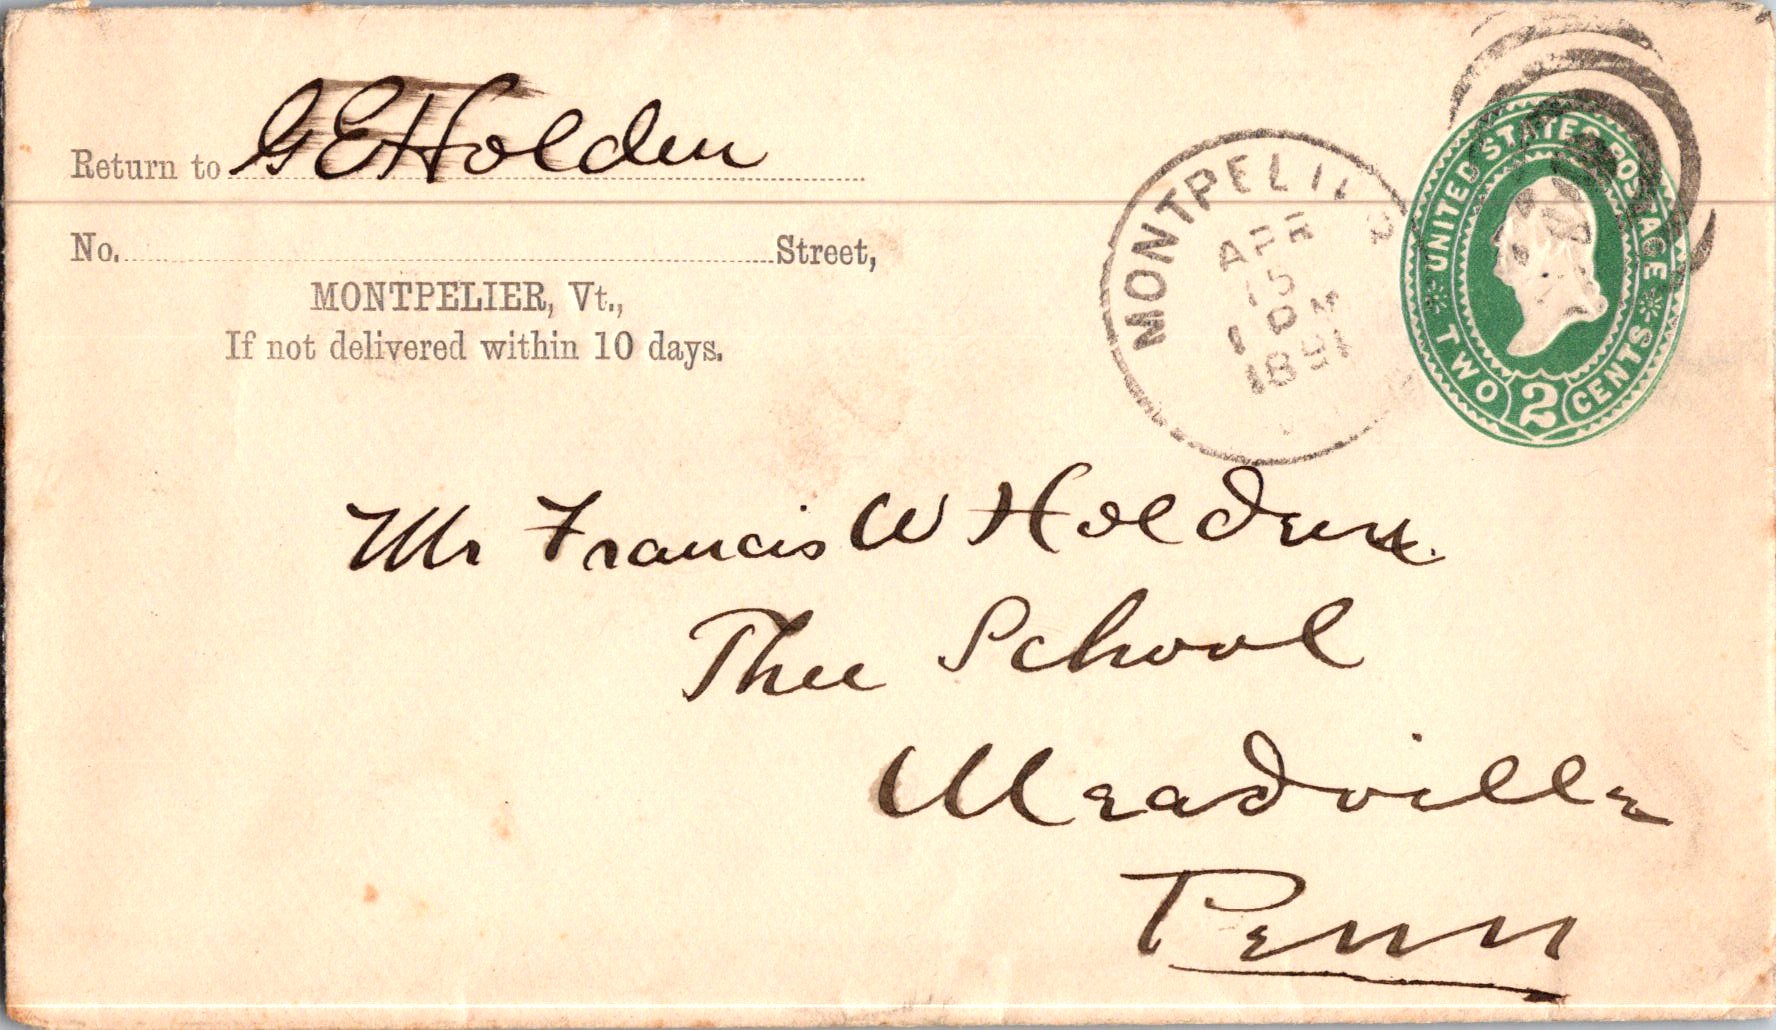 Return to G E Holden
No. Street,
MONTPELIER, Vt.,
If not delivered within 10 days.
MONTPELIER
APR
15
1 PM
1891
UNITED STATES POSTAGE
TWO 2 CENTS
Mr Francis W Holden.
Thee School
Meadville
Penn